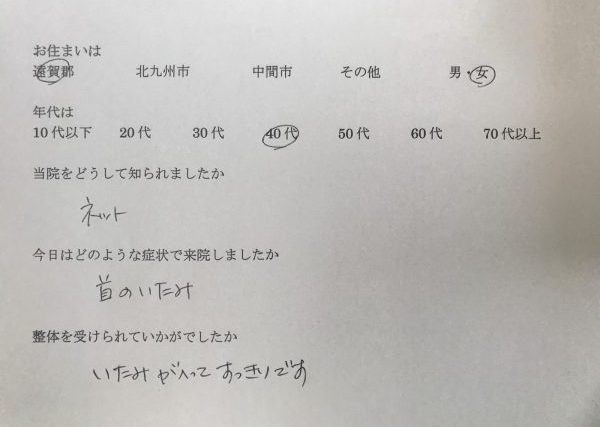 お住まいは
遠賀郡 北九州市 中間市 その他 男・女
年代は
10代以下 20代 30代 40代 50代 60代 70代以上
当院をどうして知られましたか
ネット
今日はどのような症状で来院しましたか
首のいたみ
整体を受けられていかがでしたか
いたみがへってすっきりです